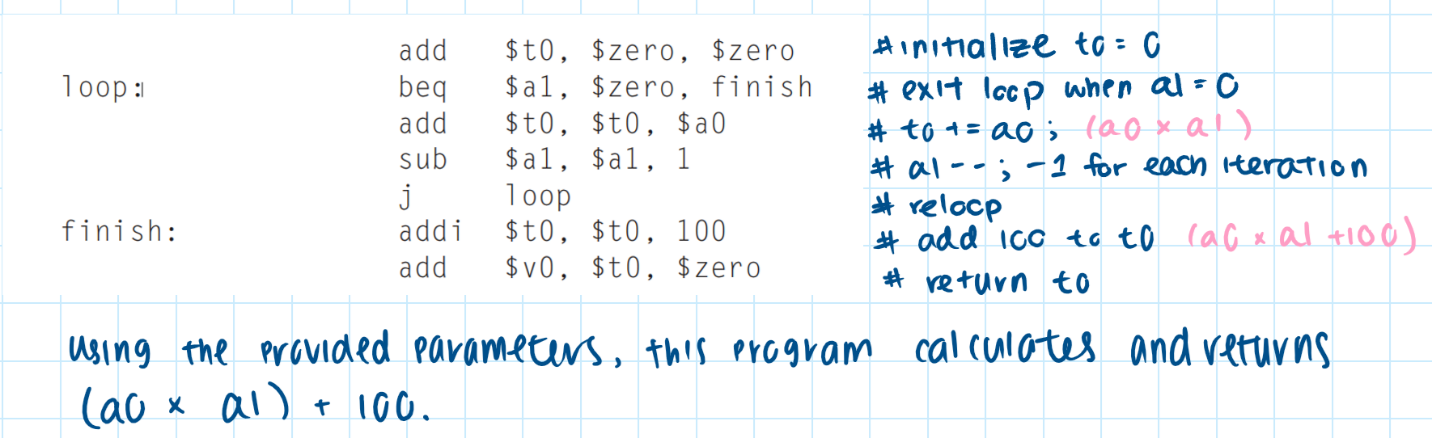 add $t0, $zero, $zero #initialize t0 = 0
loop: beq $a1, $zero, finish # exit loop when a1 = 0
add $t0, $t0, $a0 # t0 += a0 ; (a0 × a1)
sub $a1, $a1, 1 # a1 -- ; -1 for each iteration
j loop # reloop
finish: addi $t0, $t0, 100 # add 100 to t0 (a0 × a1 +100)
add $v0, $t0, $zero # return t0
using the provided parameters, this program calculates and returns
(a0 × a1) + 100.